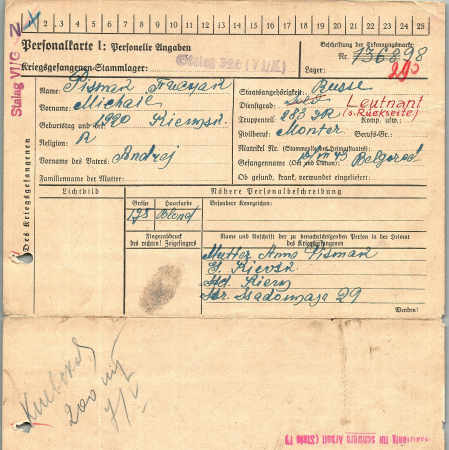 2 3 4 5 6 7 8 9 10 11 12 13 14 15 16 17 18 19 20 21 22 23 24 25
Stalag VI/G
Personalkarte I: Personelle Angaben
Kriegsgefangenen-Stammlager: Stalag 326 (VI/K)
Beschriftung der Erkennungsmarke
Nr. 136898
Lager:
Des Kriegsgefangenen
Name: Pisman
Vorname: Michail
Geburtstag und 1920
Religion: R
Vorname des Vaters: Andrej
Familienname der Mutter:
Staatsangehörigkeit: Russe
Dienstgrad: Sold Leutnant
(s. Rückseite)
Truppenteil: 283 IR Komp. usw.:
Zivilberuf: Monter Berufs-Gr.:
Matrikel Nr. (Stammrolle des Heimatstaates):
Gefangennahme (Ort und Datum): 43 Belgorod
Ob gesund, krank, verwundet eingeliefert:
Lichtbild
Nähere Personalbeschreibung
Größe Haarfarbe Besondere Kennzeichen:
178 Blond
Fingerabdruck
des rechten! Zeigefingers
Name und Anschrift der zu benachrichtigenden Person in der Heimat
des Kriegsgefangenen
Mutter Anna Pisman
G. Kievsk
Str. Sadowaja 29
Wenden!
200
für schwere Arbeit (Stufe 1)